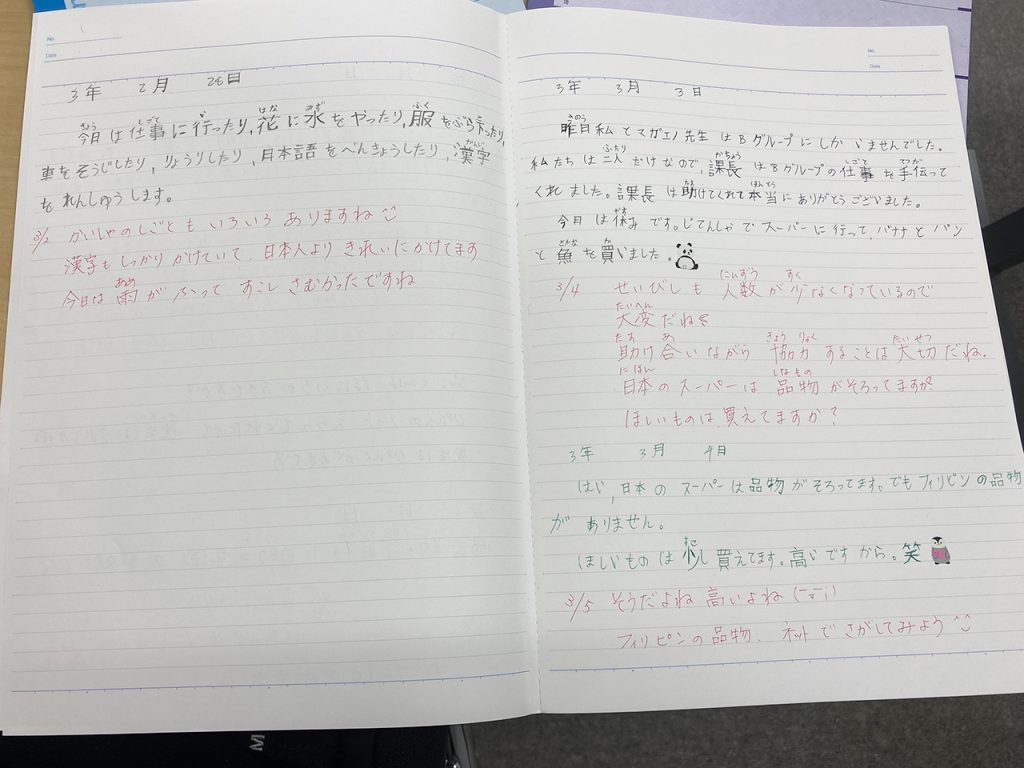 No.
Date
3年 2月 28日
今日は仕事に行ったり,花に水をやったり,服をあら言ったり,
車をそうじしたり,りょうりしたり,日本語をべんきょうしたり,漢字
をれんしゅうします。
3/2 かいしゃのしごともいろいろありますね
漢字もしっかりかけていて、日本人よりきれいにかけてます
今日は雨がふってすこしさむかったですね
No.
Date
3年 3月 3日
昨日私とマガエノ先生はBグループにしかいませんでした。
私たちは二人だけなので,課長はBグループの仕事を手伝って
くれました。課長は助けてくれて本当にありがとうございました。
今日は休みです。じてんしゃでスーパーに行って,バナナとパン
と魚を買いました。
3/4 せいびしも人数が少なくなっているので
大変だね
助け合いながら協力することは大切だね.
日本のスーパーは品物がそろってますか?
ほしいものは買えてますか?
3年 3月 4日
はい,日本のスーパーは品物がそろってます。でもフィリピンの品物
がありません。
ほしいものは少し買えてます。高いですから。笑
3/5 そうだよね 高いよね
フィリピンの品物、ネットでさがしてみよう